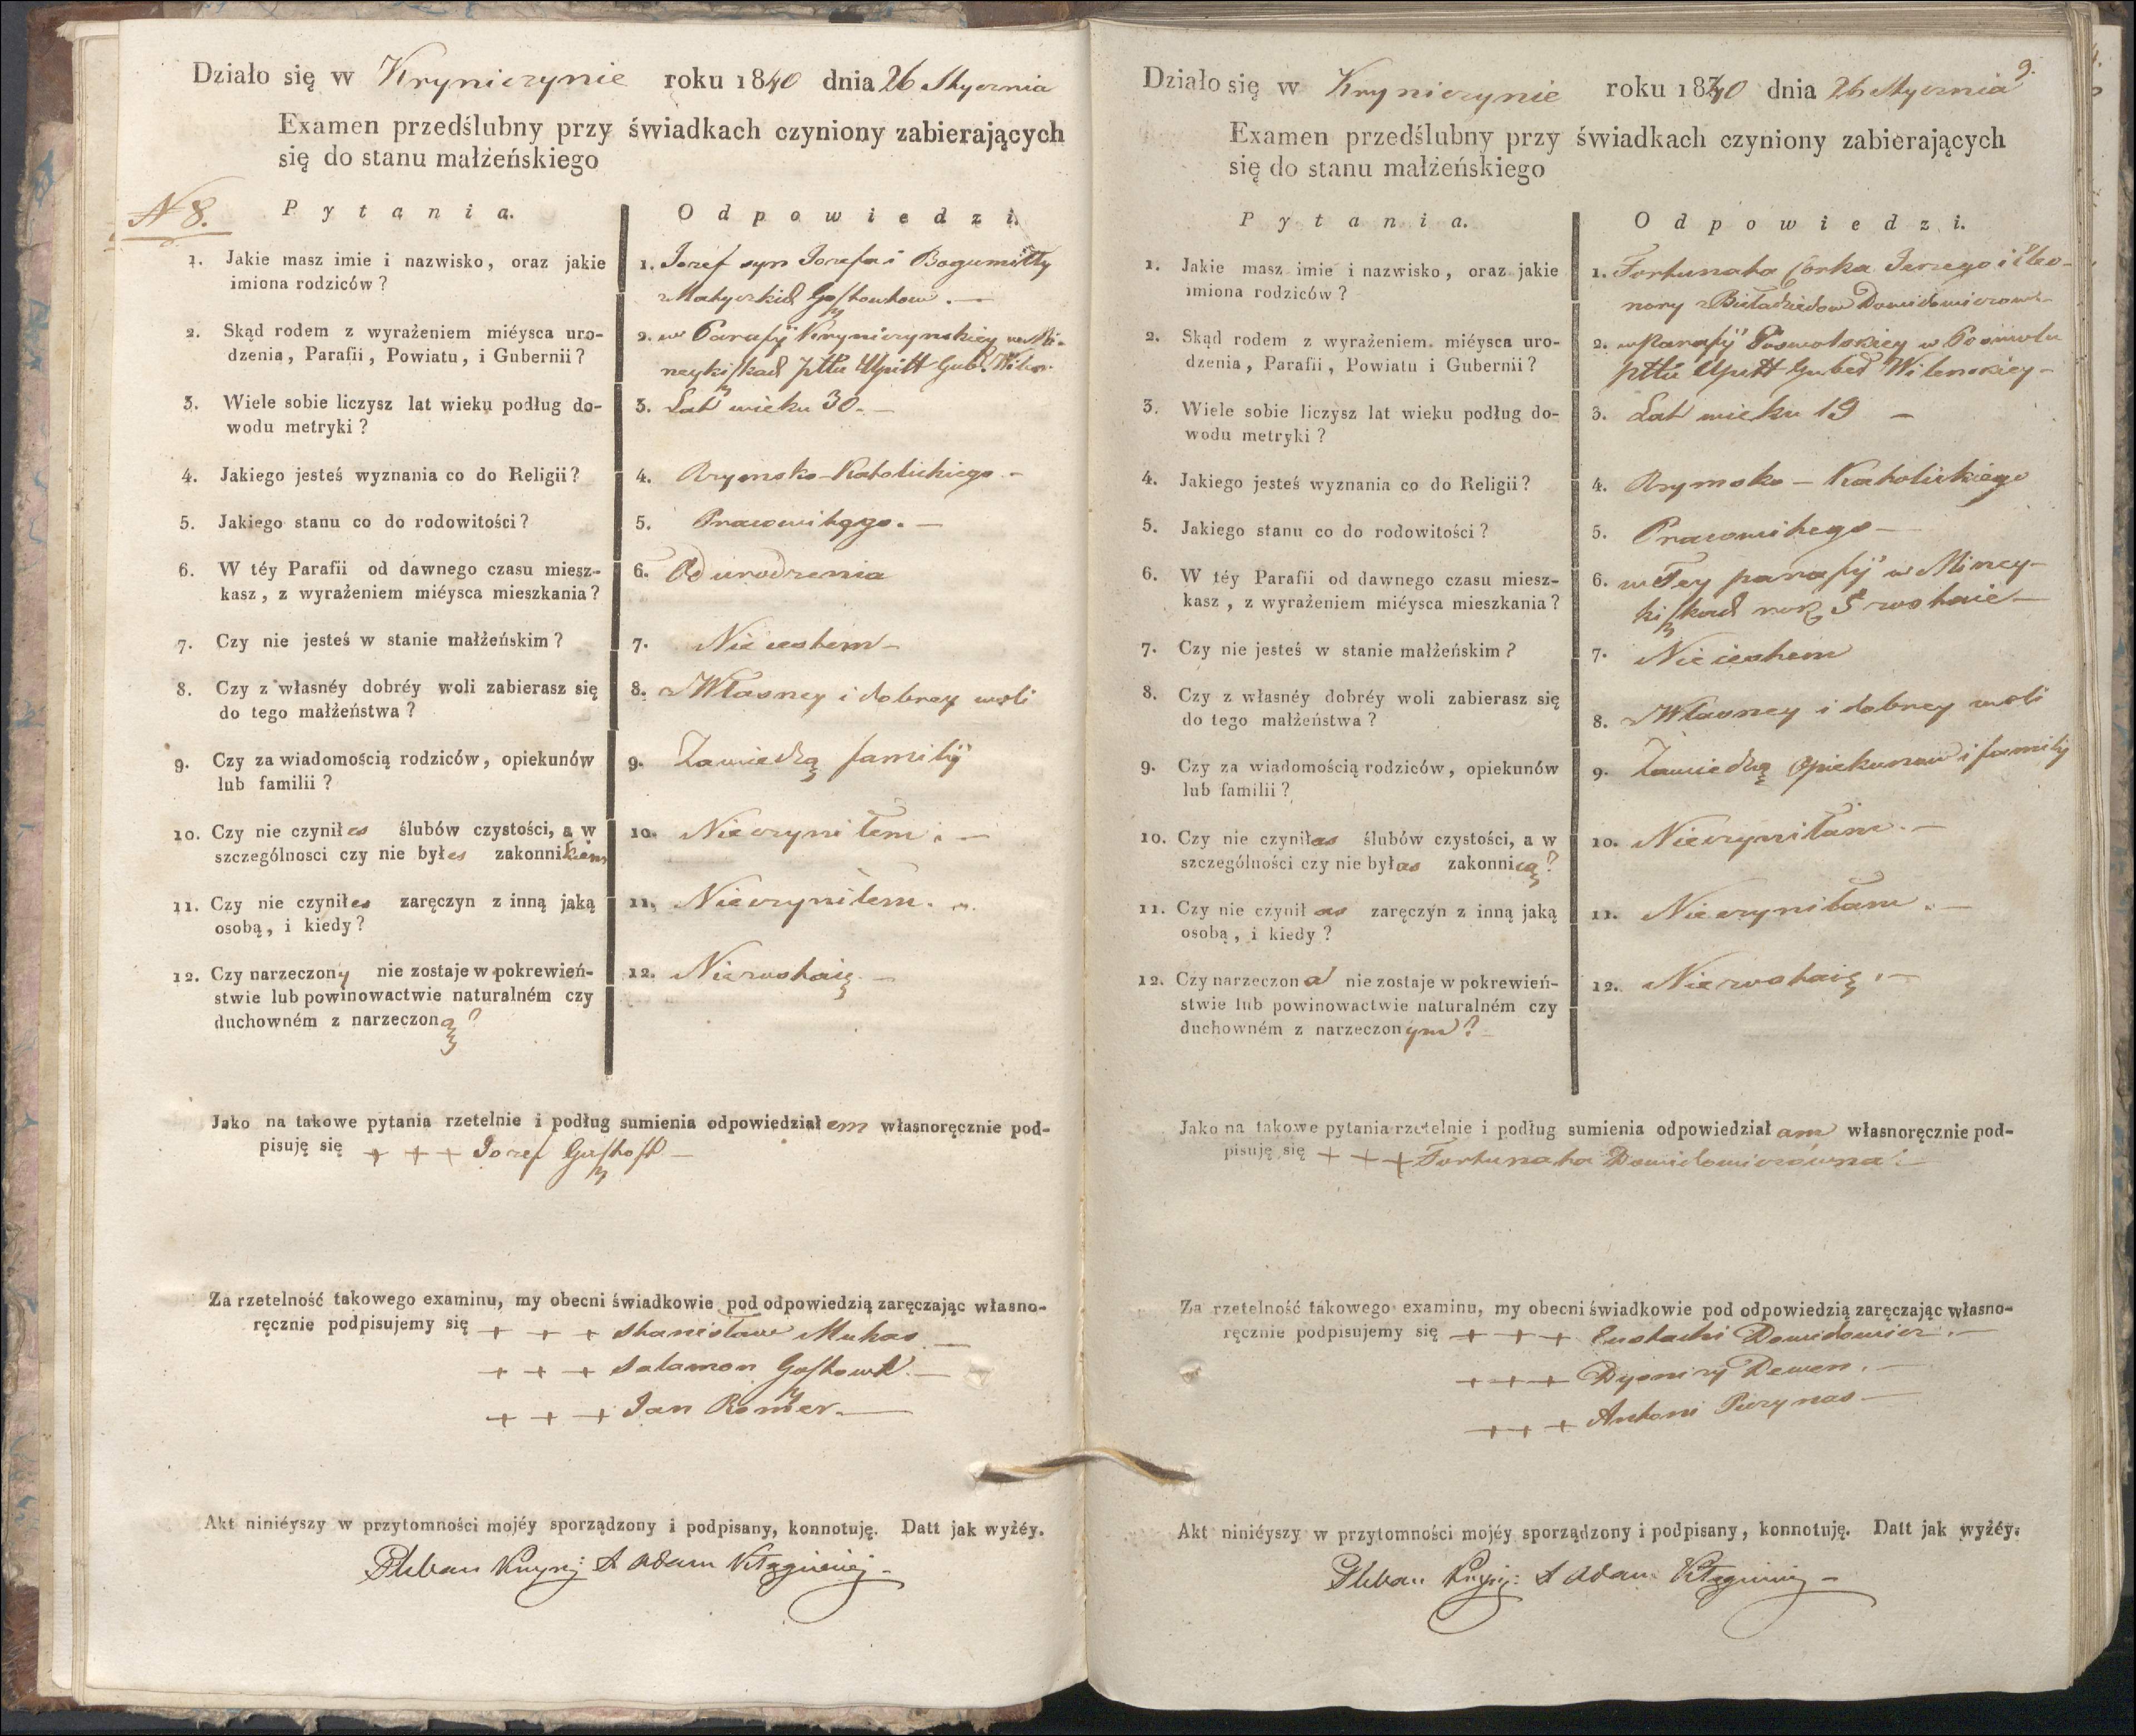 Działo się w Kryniczynie roku 1840 dnia 26 Stycznia
Examen przedślubny przy świadkach czyniony zabierających
się do stanu małżeńskiego
N 8.
Pytania.
Odpowiedzi.
1. Jakie masz imie i nazwisko, oraz jakie
imiona rodziców?
1. Jozef syn Jozefa i Bogumiłły
Gasztowtow. —
2. Skąd rodem z wyrażeniem miéysca uro-
dzenia, Parafii, Powiatu, i Gubernii?
2. w Parafij Kryniczynskiey w Mi-
neykiszkach pttu Upitt Gub. Wilen.
3. Wiele sobie liczysz lat wieku podług do-
wodu metryki?
3. Lat wieku 30. —
4. Jakiego jesteś wyznania co do Religii?
4. Rzymsko-Katolickiego —
5. Jakiego stanu co do rodowitości?
5. Pracowitego. —
6. W téy Parafii od dawnego czasu miesz-
kasz, z wyrażeniem miéysca mieszkania?
6. Od urodzenia
7. Czy nie jesteś w stanie małżeńskim?
7. Nie iestem —
8. Czy z własnéy dobréy woli zabierasz się
do tego małżeństwa?
8. z Własney i dobrey woli
9. Czy za wiadomością rodziców, opiekunów
lub familii?
9. Zawiedzą familij
10. Czy nie czyniłes ślubów czystości, a w
szczególnosci czy nie byłes zakonnikiem
10. Nieczyniłem. —
11. Czy nie czyniłes zaręczyn z inną jaką
osobą, i kiedy?
11. Nieczyniłem.
12. Czy narzeczony nie zostaje w pokrewień-
stwie lub powinowactwie naturalném czy
duchowném z narzeczoną?
12. Niezostaię. —
Jako na takowe pytania rzetelnie i podług sumienia odpowiedziałem własnoręcznie pod-
pisuję się + + + Jozef Gasztoft —
Za rzetelność takowego examinu, my obecni świadkowie pod odpowiedzią zaręczając własno-
ręcznie podpisujemy się + + + Stanisław Mukas —
+ + + Salamon Gasztowt. —
+ + + Jan Romer. —
Akt niniéyszy w przytomności mojéy sporządzony i podpisany, konnotuję. Datt jak wyżéy.
Pleban X Adam
9.
Działo się w Kryniczynie roku 1840 dnia 26 Stycznia
Examen przedślubny przy świadkach czyniony zabierających
się do stanu małżeńskiego
Pytania.
Odpowiedzi.
1. Jakie masz imie i nazwisko, oraz jakie
imiona rodziców?
1. Fortunata Córka Jerzego i Eleo-
nory z Dowidowiczow
2. Skąd rodem z wyrażeniem miéysca uro-
dzenia, Parafii, Powiatu i Gubernii?
2. w Parafij Poswolskiey w Poswolu
pttu Upitt Guber Wilenskiey —
3. Wiele sobie liczysz lat wieku podług do-
wodu metryki?
3. Lat wieku 19 —
4. Jakiego jesteś wyznania co do Religii?
4. Rzymsko — Katolickiego
5. Jakiego stanu co do rodowitości?
5. Pracowitego —
6. W téy Parafii od dawnego czasu miesz-
kasz, z wyrażeniem miéysca mieszkania?
6. w Tey parafij w Miney-
kiszkach rok 5 zostaie —
7. Czy nie jesteś w stanie małżeńskim?
7. Nie iestem
8. Czy z własnéy dobréy woli zabierasz się
do tego małżeństwa?
8. z Własney i dobrey woli
9. Czy za wiadomością rodziców, opiekunów
lub familii?
9. Zawiedzą Opiekunow i familij
10. Czy nie czyniłas ślubów czystości, a w
szczególności czy nie byłas zakonnicą?
10. Nieczyniłam. —
11. Czy nie czyniłas zaręczyn z inną jaką
osobą, i kiedy?
11. Nieczyniłam. —
12. Czy narzeczona nie zostaje w pokrewień-
stwie lub powinowactwie naturalném czy
duchowném z narzeczonym?
12. Niezostaię. —
Jako na takowe pytania rzetelnie i podług sumienia odpowiedziałam własnoręcznie pod-
pisuję się + + + Fortunata Dowidowiczowna —
Za rzetelność takowego examinu, my obecni świadkowie pod odpowiedzią zaręczając własno-
ręcznie podpisujemy się + + + Eustachi Dowidowicz. —
+ + + Dyonizy Dewen. —
+ + + Antoni Puzynas —
Akt niniéyszy w przytomności mojéy sporządzony i podpisany, konnotuję. Datt jak wyżéy.
Pleban X Adam